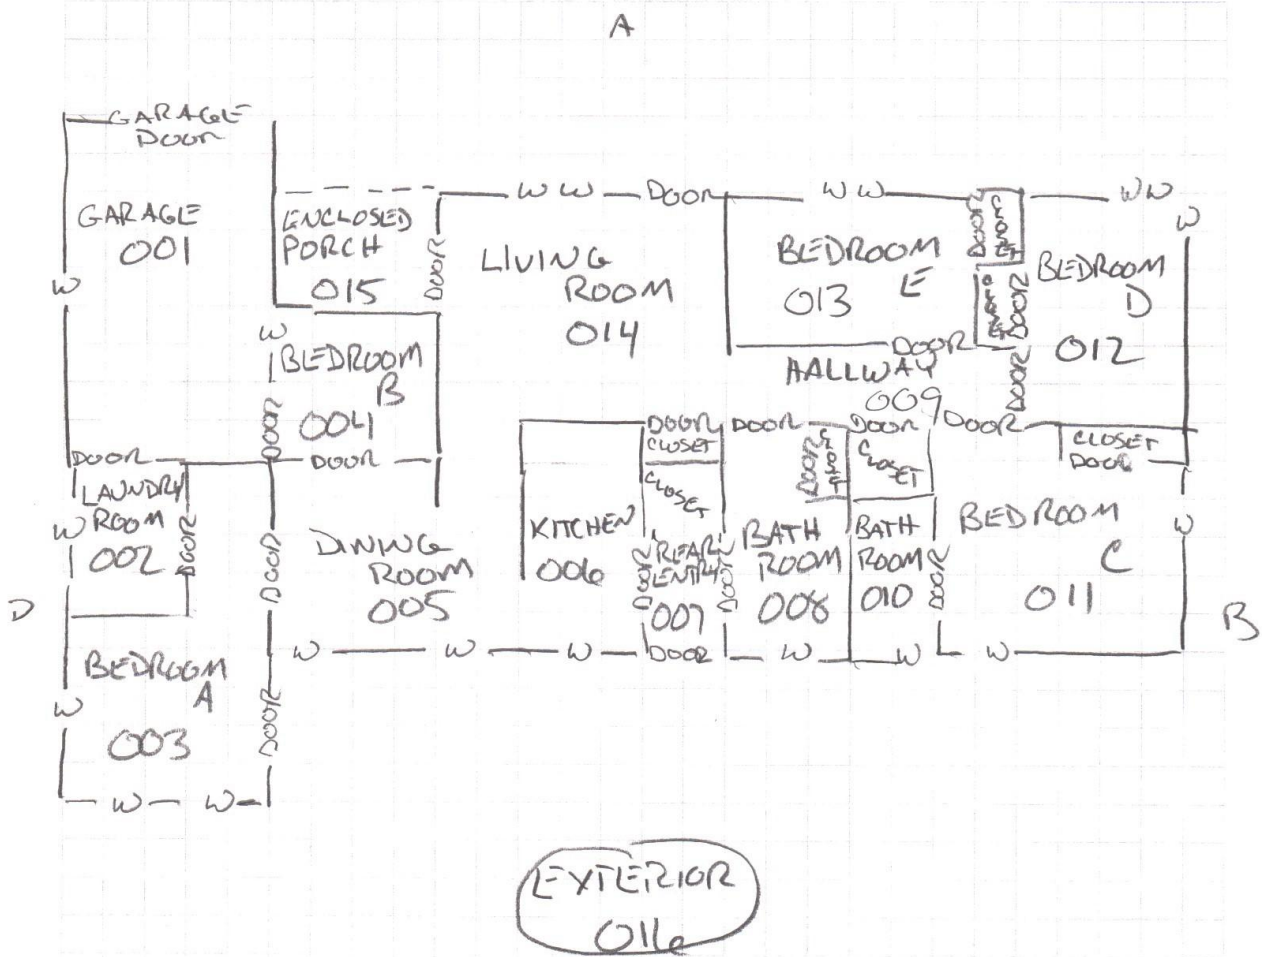 A
GARAGE
DOOR
GARAGE
001
W
ENCLOSED
PORCH
015
DOOR
W W
DOOR
LIVING
ROOM
014
W W
BEDROOM
E
013
DOOR
DOOR
CLOSET
CLOSET
DOOR
WW
W
BEDROOM
D
012
DOOR
W
BEDROOM
B
004
DOOR
DOOR
HALLWAY
009
DOOR
LAUNDRY
ROOM
002
W
DOOR
DOOR
DINING
ROOM
005
KITCHEN
006
DOOR
CLOSET
CLOSET
DOOR
REAR
ENTRY
007
DOOR
DOOR
DOOR
DOOR
CLOSET
BATH
ROOM
008
DOOR
CLOSET
BATH
ROOM
010
DOOR
DOOR
CLOSET
DOOR
BEDROOM
C
011
W
D
B
W
W
W
DOOR
W
W
W
BEDROOM
A
003
W
DOOR
W
W
EXTERIOR
016